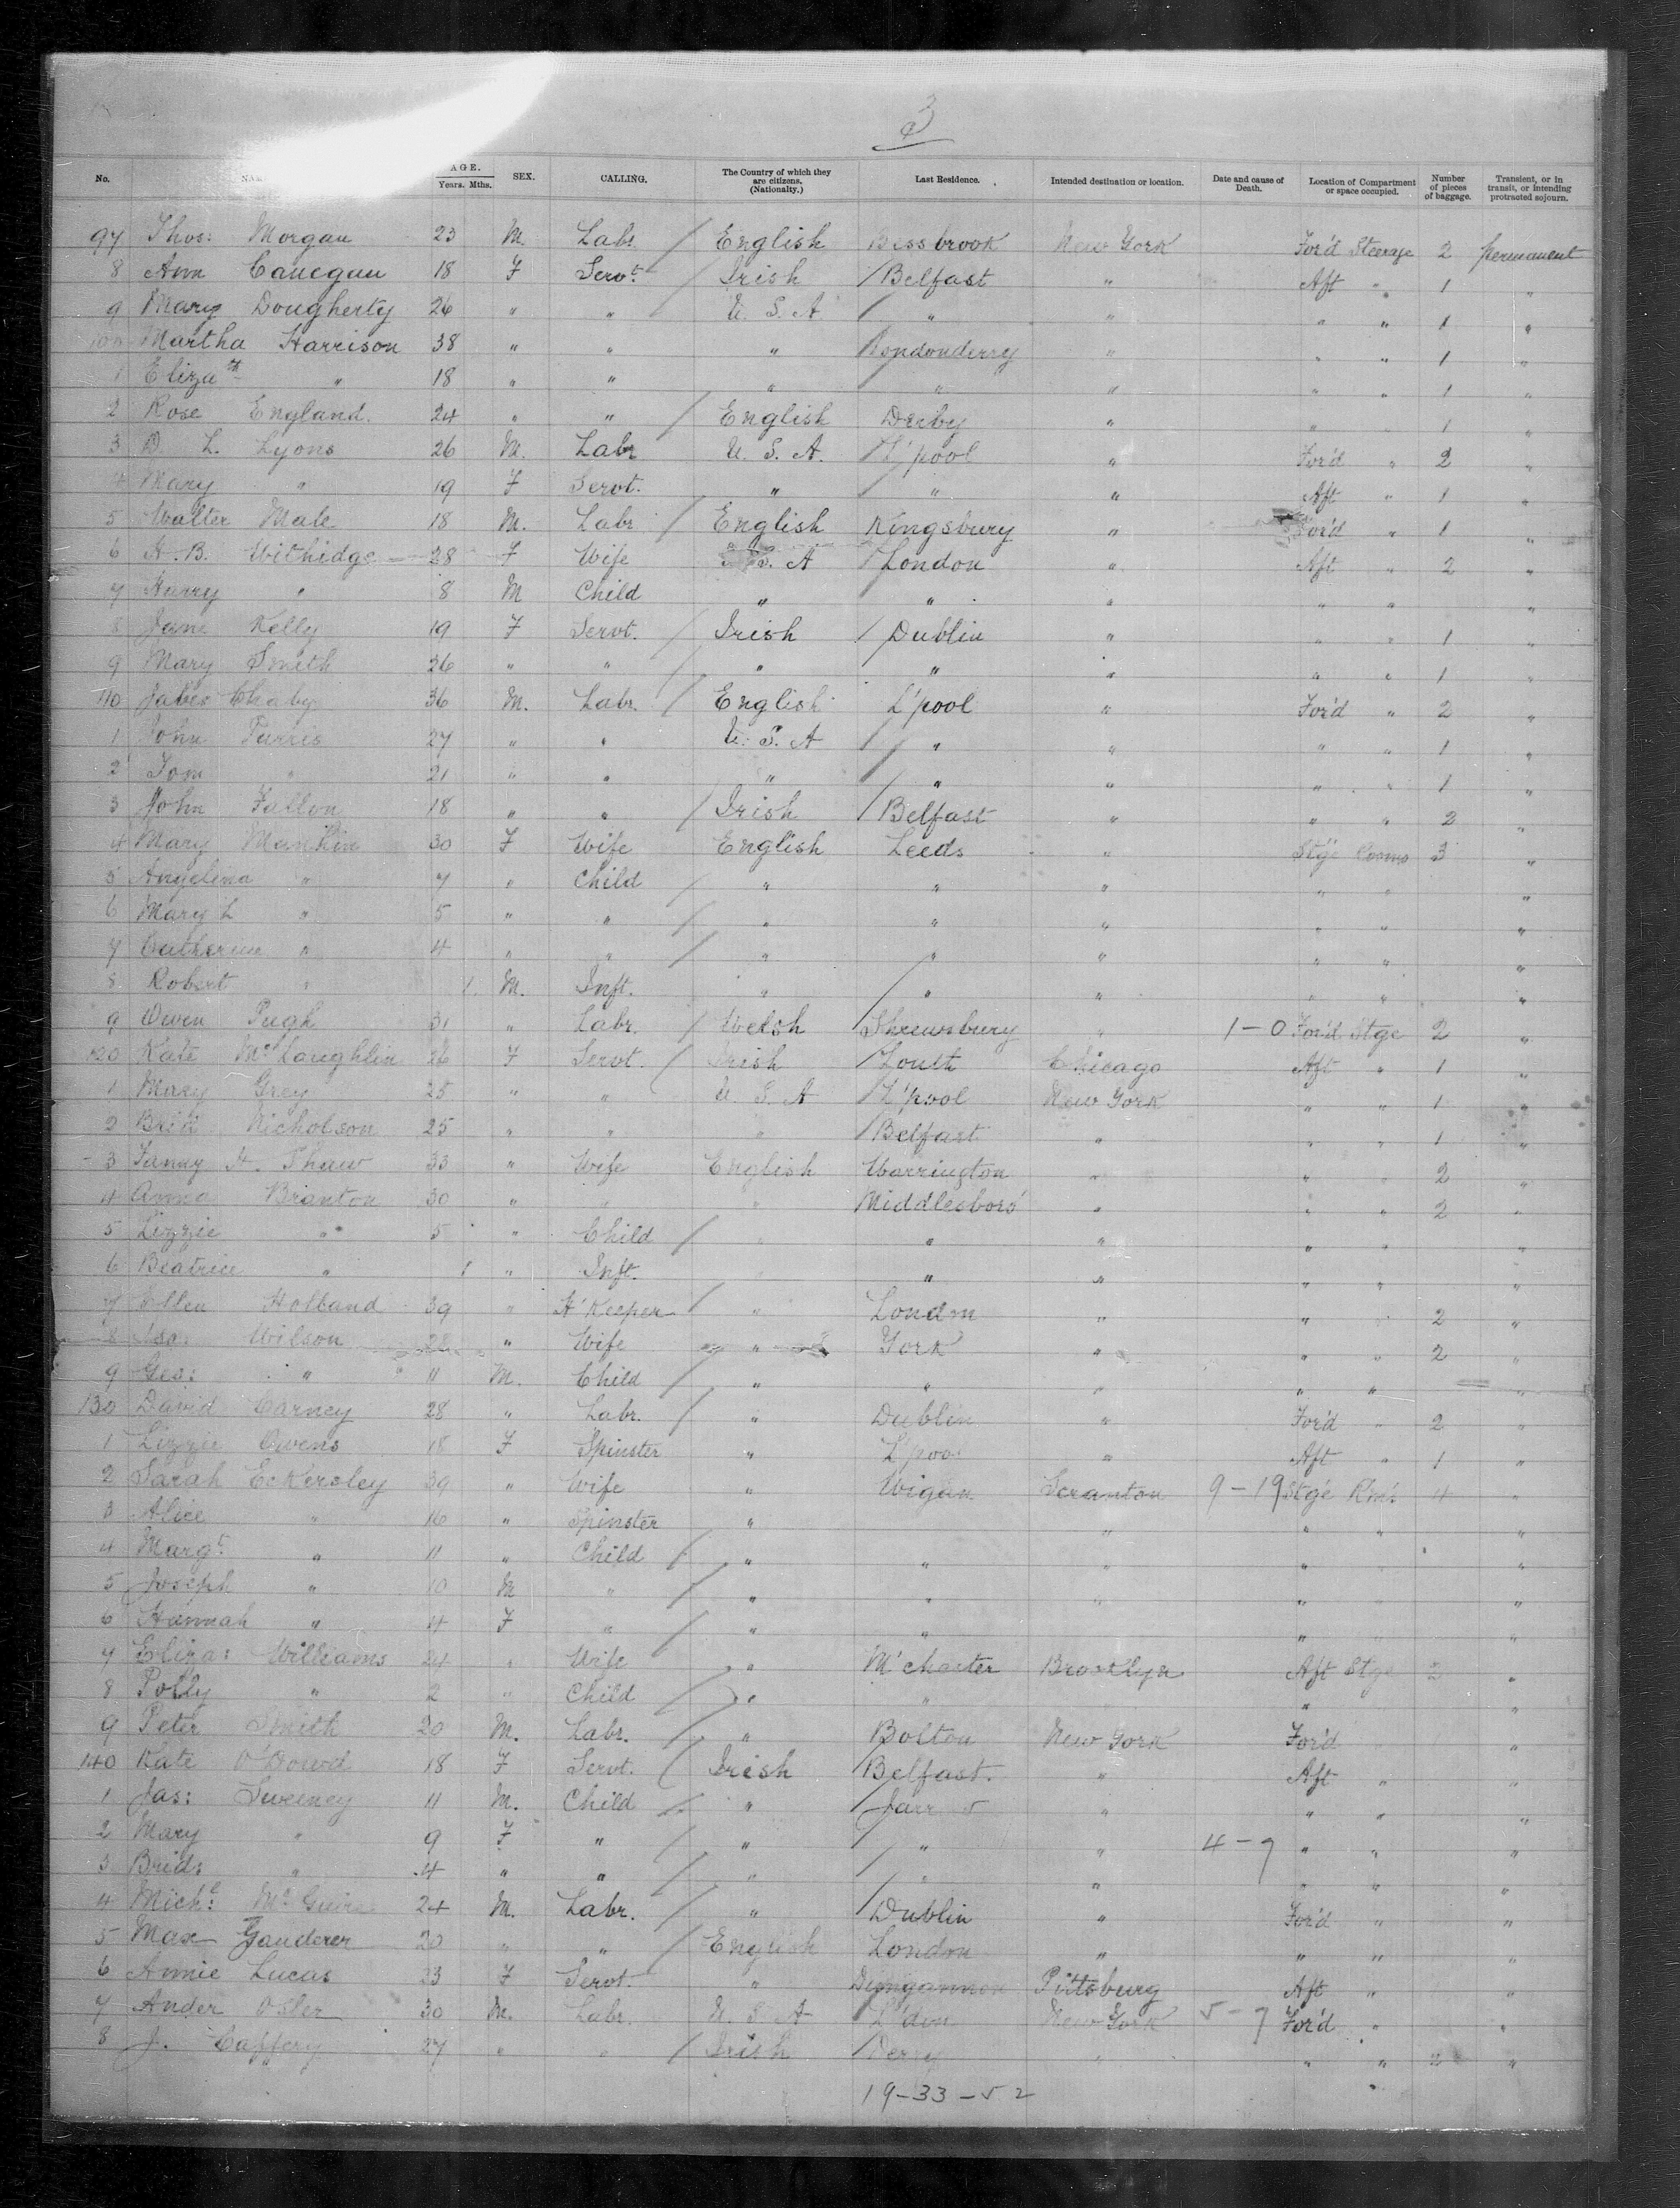 3
No. AGE. Years. Mths. SEX. CALLING. The Country of which they are citizens. (Nationality.) Last Residence. Intended destination or location. Date and cause of Death. Location of Compartment or space occupied. Number of pieces of baggage. Transient, or in transit, or intending protracted sojourn.
97 Thos: Morgan 23 M. Labr. / English Bessbrook New York For'd Steerage 2 permanent
8 Ann 18 F Servt. / Irish / Belfast " Aft " 1 "
9 Mary Dougherty 26 " " U. S. A / " " " " 1 "
100 Martha Harrison 38 " " " / Londonderry " " " 1 "
1 Elizath " 18 " " " " " " " 1 "
2 Rose England. 24 " " / English Derby " " " 1 "
3 D. L. Lyons 26 M. Labr U. S. A. / L'pool " For'd " 2 "
4 Mary " 19 F Servt. " / " " Aft " 1 "
5 Walter Male 18 M. Labr / English Kingsbury " For'd " 1 "
6 H. B. Withidge 28 F Wife U. S. A / London " Aft " 2 "
7 Harry " 8 M Child " " " " " "
8 Jane Kelly 19 F Servt. / Irish / Dublin " " " 1 "
9 Mary Smith 26 " " / " / " " " " 1 "
110 James 36 M. Labr. / English L'pool " For'd " 2 "
1 John 27 " " U. S. A / " " " " 1 "
2 Tom " 21 " " " / " " " " 1 "
3 John Fallon 18 " " / Irish / Belfast " " " 2 "
4 Mary 30 F Wife English Leeds " Stge Rooms 3 "
5 Angelina " 7 " Child / " " " " " "
6 Mary L " 5 " " / " " " " " "
7 Catherine " 4 " " / " " " " " "
8 Robert " 1 M. Inft. " / " " " " "
9 Owen Pugh 31 " Labr. / Welsh Shrewsbury " 1-0 For'd Stge 2 "
120 Kate McLaughlin 26 F Servt. / Irish / Louth Chicago Aft " 1 "
1 Mary Grey 25 " " U S. A / L'pool New York " " 1 "
2 Nicholson 25 " " " / Belfast " " " 1 "
3 Fanny H. Shaw 33 " Wife English Warrington " " " 2 "
4 Anna Branton 30 " " " Middlesboro' " " " 2 "
5 Lizzie " 5 " Child / " " " " " "
6 Beatrice " 1 " Inft. " " " " " "
7 Ellen Holland 39 " H'Keeper / " London " " " 2 "
8 Isa: Wilson " Wife " York " " " 2 "
9 Geo: " 11 M. Child / " " " " " "
130 David Carney 28 " Labr. / " Dublin " For'd " 2 "
1 Lizzie Owens 18 F Spinster " L'pool " Aft " 1 "
2 Sarah Eckersley 39 " Wife " Wigan Scranton 9-19 Stge Rms. 4 "
3 Alice " 16 " Spinster " " " " "
4 Margt. " 11 " Child / " " " " "
5 Joseph " 10 M " / " " " " "
6 Hannah " 4 F " / " " " "
7 Eliza: Williams 24 " Wife " M'chester Brooklyn Aft Stge 2 "
8 Polly " 2 " Child / " " " "
9 Peter Smith 20 M. Labr. / " Bolton New York For'd "
140 Kate O'Dowd 18 F Servt. / Irish / Belfast. " Aft " "
1 Jas: Sweeney 11 M. Child / " " " " "
2 Mary " 9 F " / " / " " 4-7 " " "
3 Brid: " 4 " " / " / " " " " "
4 Michl: McGuire 24 M. Labr. / " / Dublin " For'd " "
5 Max Gauderer 20 " " / English London " " " "
6 Annie Lucas 23 F Servt. " Dungannon Pittsburg Aft " "
7 Ander Osler 30 M. Labr. U. S A L'don New York 5-7 For'd " "
8 J. Caffery 27 " " / Irish / Derry " " " 2 "
19-33-52